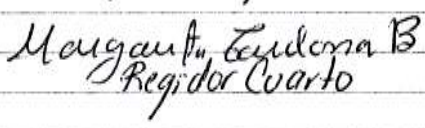 Margarita Cardona B
Regidor Cuarto